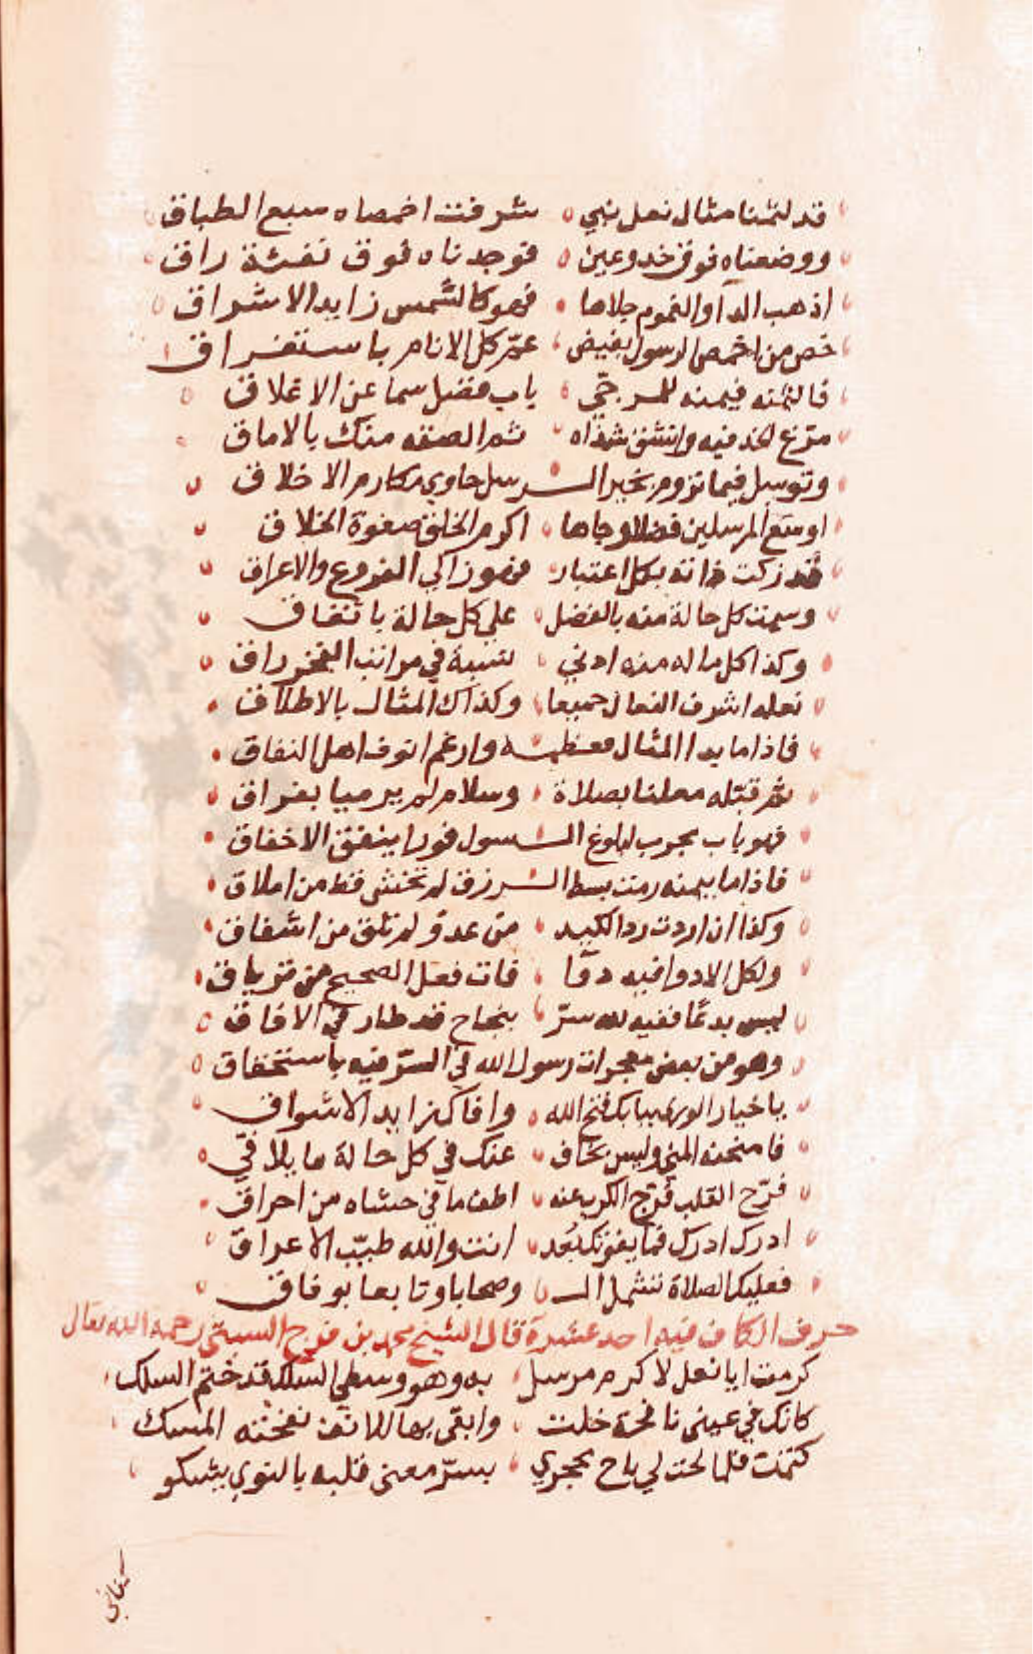 قد لثمنا مثال نعل نبي شرفت اخمصاه سبع الطباق
ووضعناه فوق خد وعين فوجدناه فوق نفثة راق
اذهب الدآ والغموم جلاها فهو كالشمس زايد الاشراق
خص من اخمص الرسول بفيض عمّ كل الانام باستغراق
فالثمنه فيمنه للمرجّي باب فضل سما عن الاغلاق
مرّغ الخد فيه وانتشق شذاه ثم الصقه منك بالاماق
وتوسل فيما تروم بخير الـرسل حاوي مكارم الاخلاق
اوسع المرسلين فضلا وجاها اكرم الخلق صفوة الخلاق
قد زكت ذاته بكل اعتبار فهو زاكي الفروع والاعراق
وسمت كل حالة منه بالفضل على كل حالة باتفاق
وكذا كل ما له منه ادني نسبة في مراتب الفخر راق
نعله اشرف النعال جميعا وكذاك المثال بالاطلاق
فاذا ما بدا المثال فعظمـه وارغم انوف اهل النفاق
ثم قبّله معلنا بصلاة وسلام لم يرميا بفراق
فهو باب مجرب لبلوغ الـسول فورا ينفق الاخفاق
فاذا ما بيمنه رمت بسط الـرزق لم تخش قط من املاق
وكذا ان اردت رد الكيد من عدوّ لم تلق من اشفاق
ولكل الادوا فيه دوآ فات فعل الصحيح من ترياق
ليس بدعًا ففيه لله سرّ بنجاح قد طار في الافاق
وهو من بعض معجزات رسول الله في السرّ فيه باستحقاق
يا خيار الورى ببابك فتح الله وافاك زايد الاشواق
فامنحنه المنى وليس بخاف عنك في كل حالة ما يلاقي
فرّح القلب فرّج الكرب عنه اطف ما في حشاه من احراق
ادرك ادرك فما يفوتك بُعد انت والله طبيّب الاعراق
فعليك الصلاة تشمل الـ وصحابا وتابعا بوفاق
حرف الكاف فيه احد عشرة قال الشيخ محمد بن فرج السبتي رحمه الله تعالى
كرمت ايا نعل لاكرم مرسل به وهو وسطي السلك قد ختم السلك
كانك في عيني نافجة خلت وابقى بها للانف نفحته المسك
كتمت فلما لحت لي باح محجري بسرّ معنى قلبه بالنوي يشكو